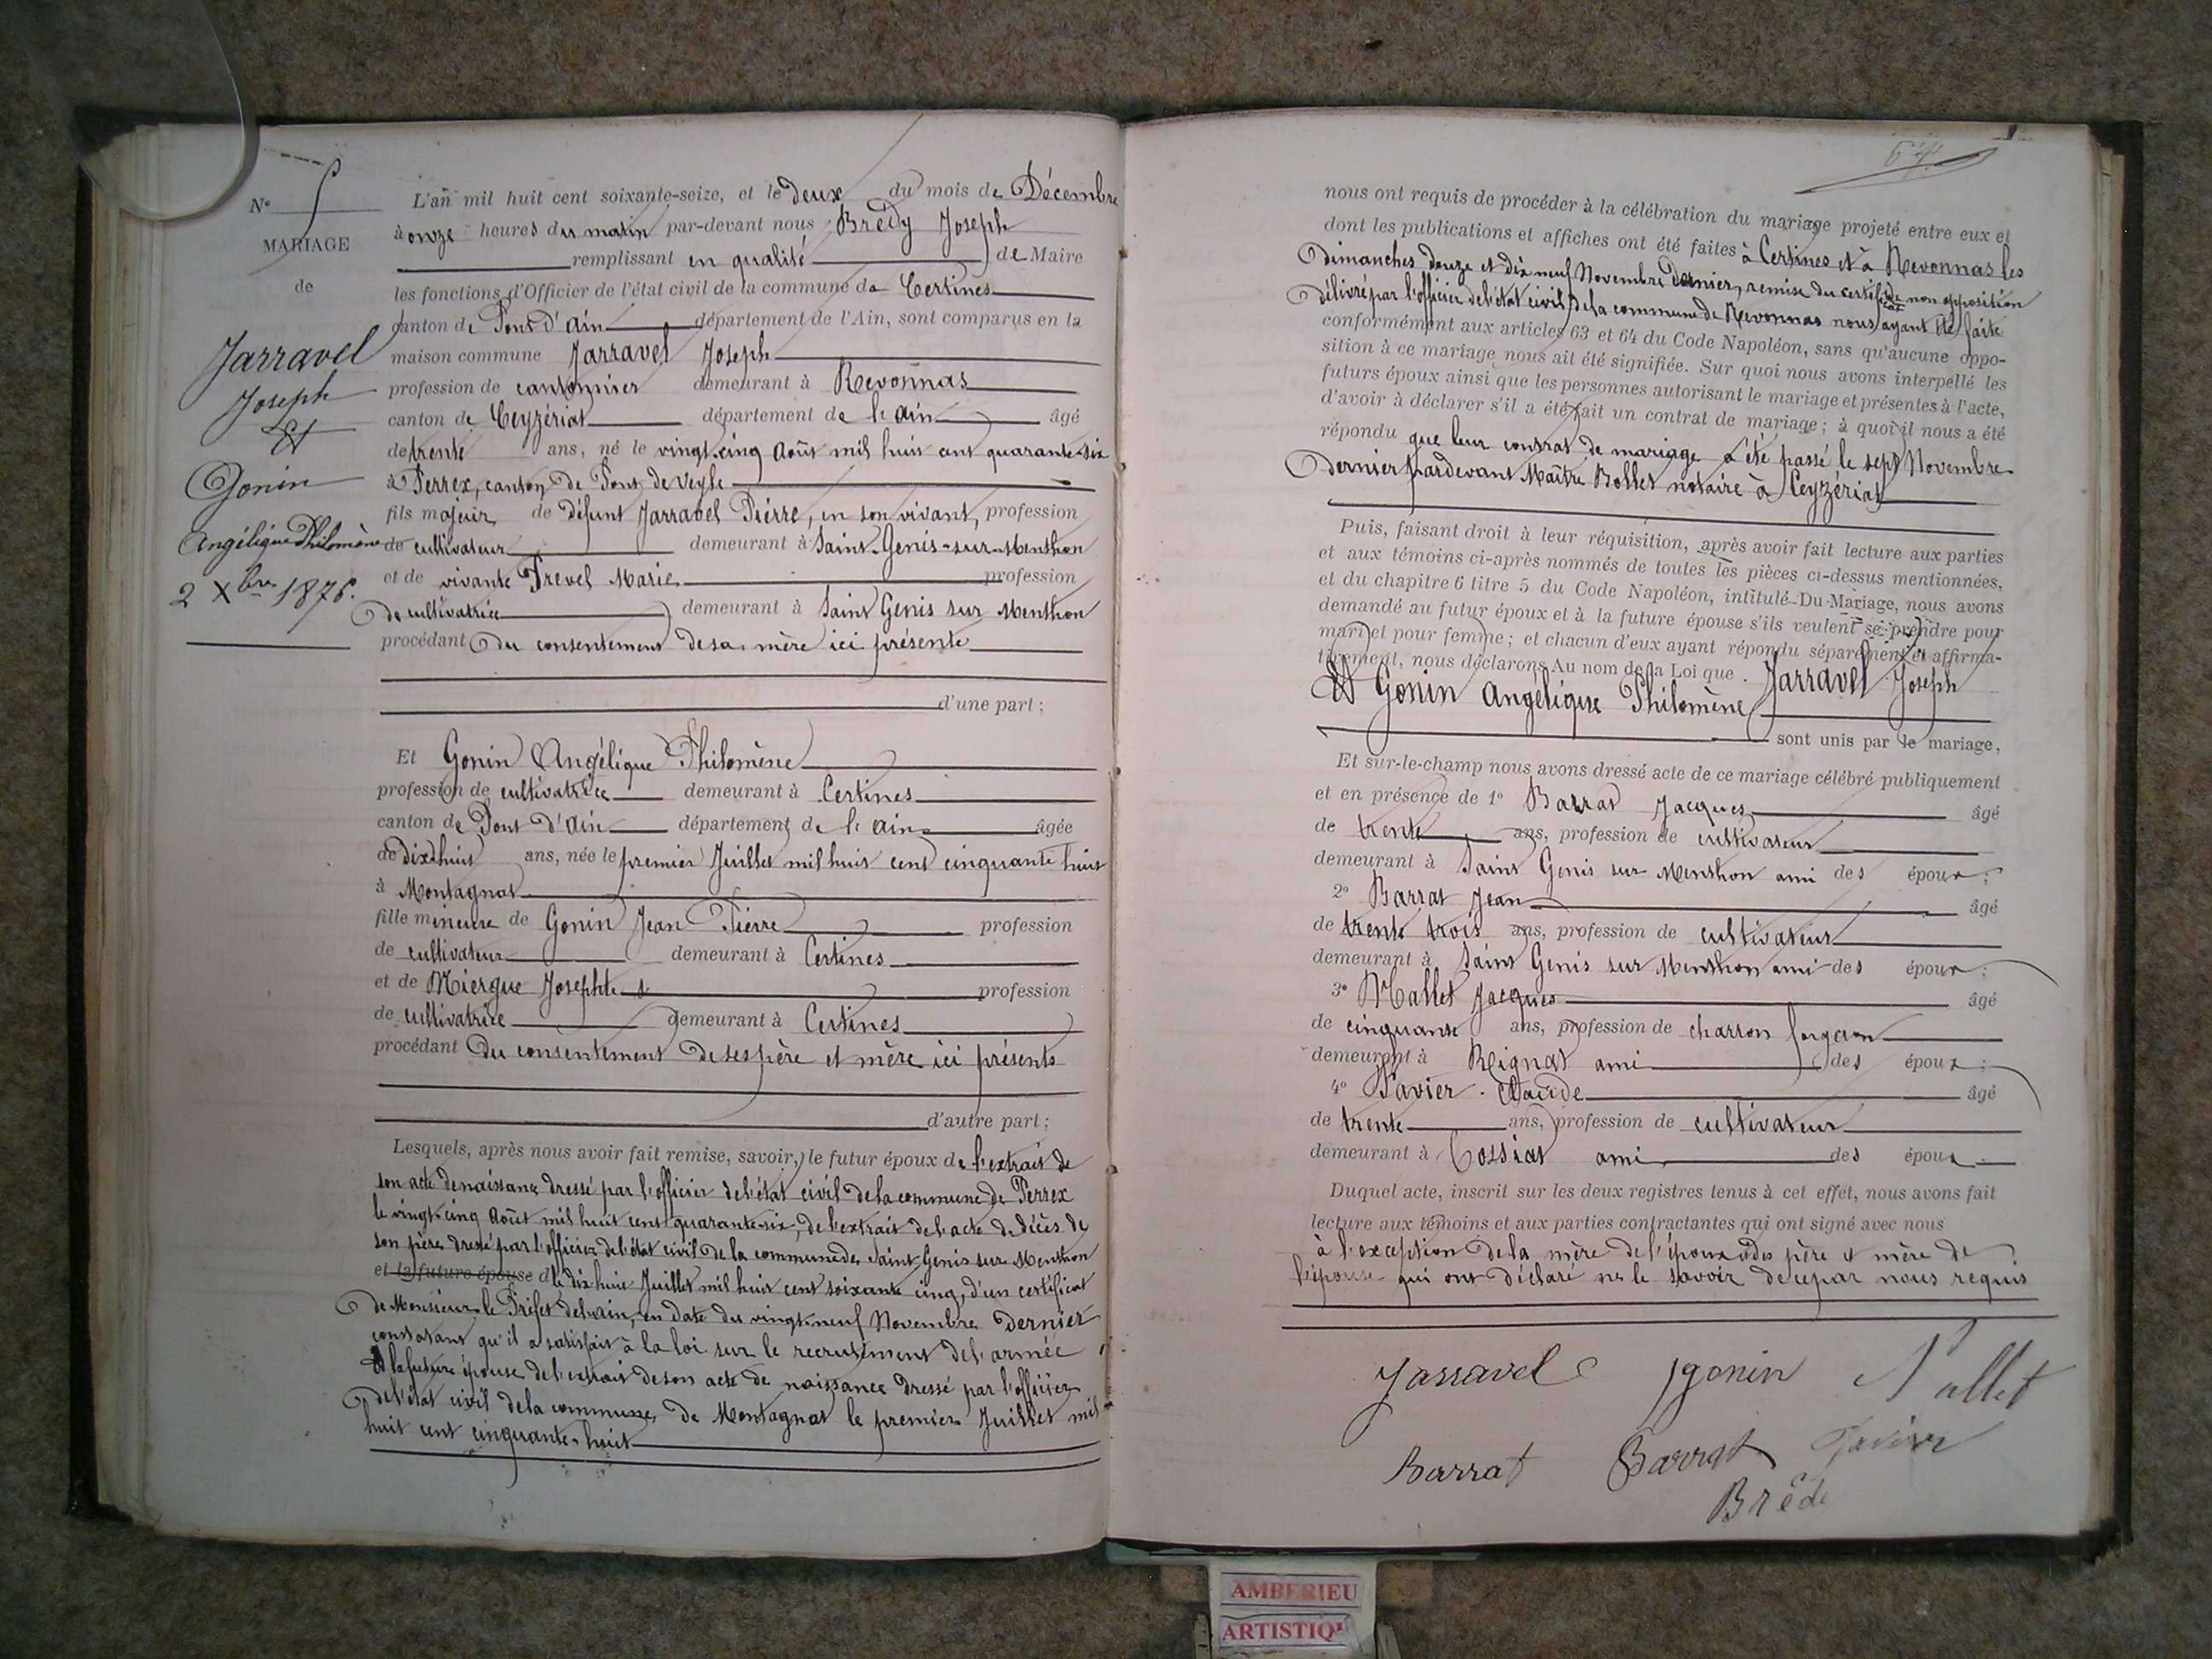 N° 5
MARIAGE
de
Jarravel
Joseph
Et
Gonin
Angélique Philomène
2 Xbre 1876.
L'an mil huit cent soixante-seize, et le deux du mois de Décembre
à onze heures du matin par-devant nous Brédy Joseph
remplissant en qualité de Maire
les fonctions d'Officier de l'état civil de la commune de Certines
canton de Pont d'Ain département de l'Ain, sont comparus en la
maison commune Jarravel Joseph
profession de cantonnier demeurant à Revonnas
canton de Ceyzériat département de l'Ain âgé
de trente ans, né le vingt-cinq Août mil huit cent quarante-six
à Perrex, canton de Pont de Veyle
fils majeur de défunt Jarravel Pierre, en son vivant, profession
de cultivateur demeurant à Saint-Genis-sur-Menthon
et de vivante Prevel Marie profession
de cultivatrice demeurant à Saint Genis sur Menthon
procédant du consentement de sa mère ici présente
d'une part ;
Et Gonin Angélique Philomène
profession de cultivatrice demeurant à Certines
canton de Pont d'Ain département de l'Ain âgée
de dix-huit ans, née le premier Juillet mil huit cent cinquante huit
à Montagnat
fille mineure de Gonin Jean Pierre profession
de cultivateur demeurant à Certines
et de Miergue Josephte profession
de cultivatrice demeurant à Certines
procédant du consentement de ses père et mère ici présents
d'autre part ;
Lesquels, après nous avoir fait remise, savoir, le futur époux de l'extrait de
son acte de naissance dressé par l'officier de l'état civil de la commune de Perrex
le vingt-cinq Août mil huit cent quarante-six, de l'extrait de l'acte de décès de
son père dressé par l'officier de l'état civil de la commune de Saint-Genis sur Menthon
et la future épouse d le dix huit Juillet mil huit cent soixante cinq, d'un certificat
de Monsieur le Préfet de l'ain, en date du vingt-neuf Novembre dernier
constatant qu'il a satisfait à la loi sur le recrutement de l'armée
Et la future épouse de l'extrait de son acte de naissance dressé par l'officier
de l'état civil de la commune de Montagnat le premier Juillet mil
huit cent cinquante-huit
64
nous ont requis de procéder à la célébration du mariage projeté entre eux et
dont les publications et affiches ont été faites à Certines et à Revonnas les
Dimanches douze et dix neuf Novembre dernier, remise du certificat de non opposition
délivré par l'officier de l'état civil de la commune de Revonnas nous ayant été faite
conformément aux articles 63 et 64 du Code Napoléon, sans qu'aucune oppo-
sition à ce mariage nous ait été signifiée. Sur quoi nous avons interpellé les
futurs époux ainsi que les personnes autorisant le mariage et présentes à l'acte,
d'avoir à déclarer s'il a été fait un contrat de mariage ; à quoi il nous a été
répondu que leur contrat de mariage a été passé le sept Novembre
dernier pardevant Maître Bollet notaire à Ceyzériat
Puis, faisant droit à leur réquisition, après avoir fait lecture aux parties
et aux témoins ci-après nommés de toutes les pièces ci-dessus mentionnées,
et du chapitre 6 titre 5 du Code Napoléon, intitulé Du Mariage, nous avons
demandé au futur époux et à la future épouse s'ils veulent se prendre pour
mari et pour femme ; et chacun d'eux ayant répondu séparément et affirma-
tivement, nous déclarons Au nom de la Loi que Jarravel Joseph
Et Gonin Angélique Philomène
sont unis par le mariage,
Et sur-le-champ nous avons dressé acte de ce mariage célébré publiquement
et en présence de 1° Barrat Jacques âgé
de trente ans, profession de cultivateur
demeurant à Saint Genis sur Menthon ami des époux ;
2° Barrat Jean âgé
de trente trois ans, profession de cultivateur
demeurant à Saint Genis sur Menthon ami des époux ;
3° Mallet Jacques âgé
de cinquante ans, profession de charron forgeron
demeurant à Reignat ami des époux ;
4° Pavier Claude âgé
de trente ans, profession de cultivateur
demeurant à Cossiat ami des époux
Duquel acte, inscrit sur les deux registres tenus à cet effet, nous avons fait
lecture aux témoins et aux parties contractantes qui ont signé avec nous
à l'exception de la mère de l'époux et des père et mère de
l'épouse qui ont déclaré ne le savoir de ce par nous requis
Jarravel gonin Mallet
Barrat Barrat Pavier
Brédi
AMBERIEU
ARTISTIQ